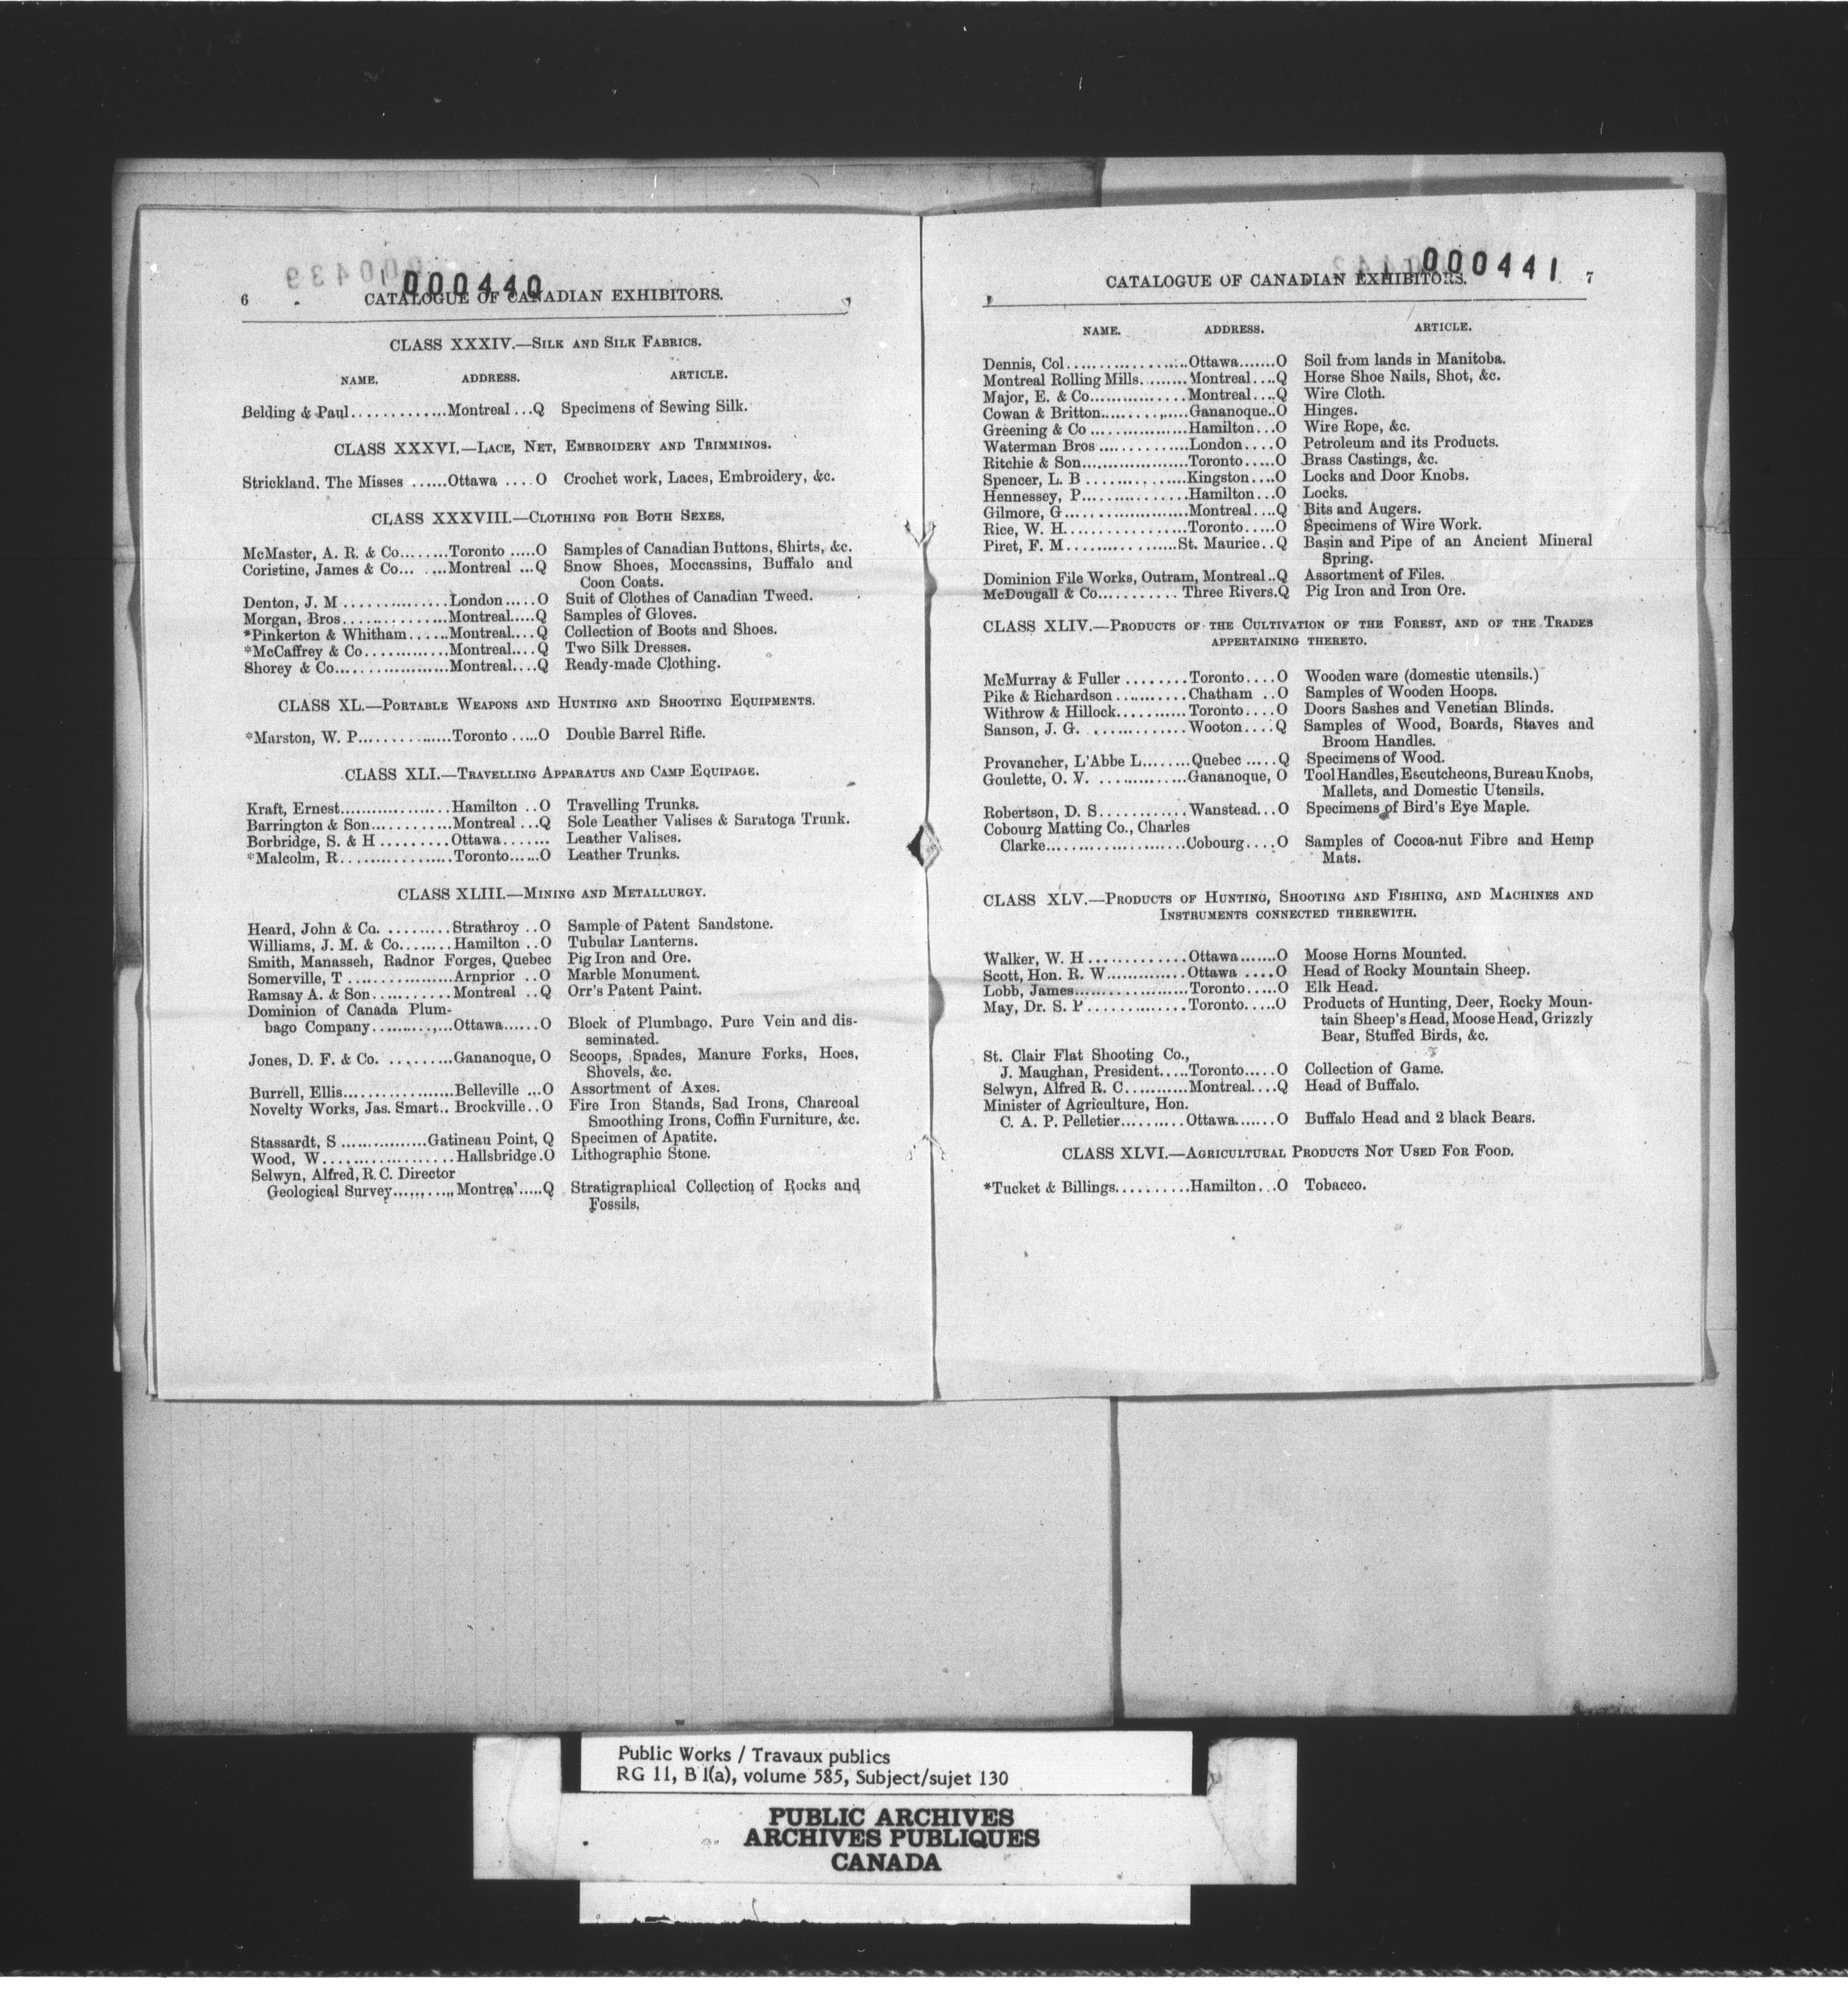 000440
6 CATALOGUE OF CANADIAN EXHIBITORS.
CLASS XXXIV.—SILK AND SILK FABRICS.
NAME. ADDRESS. ARTICLE.
Belding & Paul.............Montreal ...Q Specimens of Sewing Silk.
CLASS XXXVI.—LACE, NET, EMBROIDERY AND TRIMMINGS.
Strickland, The Misses ......Ottawa ....O Crochet work, Laces, Embroidery, &c.
CLASS XXXVIII.—CLOTHING FOR BOTH SEXES.
McMaster, A. R. & Co........Toronto .....O Samples of Canadian Buttons, Shirts, &c.
Coristine, James & Co... ....Montreal ...Q Snow Shoes, Moccassins, Buffalo and
Coon Coats.
Denton, J. M ...............London.....O Suit of Clothes of Canadian Tweed.
Morgan, Bros...............Montreal.....Q Samples of Gloves.
*Pinkerton & Whitham......Montreal....Q Collection of Boots and Shoes.
*McCaffrey & Co............Montreal....Q Two Silk Dresses.
Shorey & Co.................Montreal....Q Ready-made Clothing.
CLASS XL.—PORTABLE WEAPONS AND HUNTING AND SHOOTING EQUIPMENTS.
*Marston, W. P..............Toronto .....O Double Barrel Rifle.
CLASS XLI.—TRAVELLING APPARATUS AND CAMP EQUIPAGE.
Kraft, Ernest..................Hamilton ..O Travelling Trunks.
Barrington & Son............Montreal ...Q Sole Leather Valises & Saratoga Trunk.
Borbridge, S. & H ..........Ottawa....... Leather Valises.
*Malcolm, R.................Toronto......O Leather Trunks.
CLASS XLIII.—MINING AND METALLURGY.
Heard, John & Co. .........Strathroy ..O Sample of Patent Sandstone.
Williams, J. M. & Co........Hamilton ..O Tubular Lanterns.
Smith, Manasseh, Radnor Forges, Quebec Pig Iron and Ore.
Somerville, T ................Arnprior ..O Marble Monument.
Ramsay A. & Son...........Montreal ..Q Orr's Patent Paint.
Dominion of Canada Plum-
bago Company............Ottawa......O Block of Plumbago. Pure Vein and dis-
seminated.
Jones, D. F. & Co. .........Gananoque, O Scoops, Spades, Manure Forks, Hoes,
Shovels, &c.
Burrell, Ellis.................Belleville ...O Assortment of Axes.
Novelty Works, Jas. Smart.. Brockville..O Fire Iron Stands, Sad Irons, Charcoal
Smoothing Irons, Coffin Furniture, &c.
Stassardt, S ................Gatineau Point, Q Specimen of Apatite.
Wood, W....................Hallsbridge.O Lithographic Stone.
Selwyn, Alfred, R. C. Director
Geological Survey..........Montreal.....Q Stratigraphical Collection of Rocks and
Fossils.
000441
CATALOGUE OF CANADIAN EXHIBITORS. 7
NAME. ADDRESS. ARTICLE.
Dennis, Col...................Ottawa.......O Soil from lands in Manitoba.
Montreal Rolling Mills.........Montreal....Q Horse Shoe Nails, Shot, &c.
Major, E. & Co................Montreal....Q Wire Cloth.
Cowan & Britton..............Gananoque..O Hinges.
Greening & Co ................Hamilton...O Wire Rope, &c.
Waterman Bros ..............London....O Petroleum and its Products.
Ritchie & Son.................Toronto.....O Brass Castings, &c.
Spencer, L. B ................Kingston....O Locks and Door Knobs.
Hennessey, P.................Hamilton...O Locks.
Gilmore, G ...................Montreal....Q Bits and Augers.
Rice, W. H...................Toronto.....O Specimens of Wire Work.
Piret, F. M..................St. Maurice..Q Basin and Pipe of an Ancient Mineral
Spring.
Dominion File Works, Outram, Montreal..Q Assortment of Files.
McDougall & Co...........Three Rivers.Q Pig Iron and Iron Ore.
CLASS XLIV.—PRODUCTS OF THE CULTIVATION OF THE FOREST, AND OF THE TRADES
APPERTAINING THERETO.
McMurray & Fuller ........Toronto....O Wooden ware (domestic utensils.)
Pike & Richardson ..........Chatham ..O Samples of Wooden Hoops.
Withrow & Hillock...........Toronto....O Doors Sashes and Venetian Blinds.
Sanson, J. G. ..............Wooton....Q Samples of Wood, Boards, Staves and
Broom Handles.
Provancher, L'Abbe L........Quebec .....Q Specimens of Wood.
Goulette, O. V. .............Gananoque, O Tool Handles, Escutcheons, Bureau Knobs,
Mallets, and Domestic Utensils.
Robertson, D. S.............Wanstead...O Specimens of Bird's Eye Maple.
Cobourg Matting Co., Charles
Clarke......................Cobourg....O Samples of Cocoa-nut Fibre and Hemp
Mats.
CLASS XLV.—PRODUCTS OF HUNTING, SHOOTING AND FISHING, AND MACHINES AND
INSTRUMENTS CONNECTED THEREWITH.
Walker, W. H .............Ottawa.......O Moose Horns Mounted.
Scott, Hon. R. W.............Ottawa ....O Head of Rocky Mountain Sheep.
Lobb, James..................Toronto.....O Elk Head.
May, Dr. S. P ...............Toronto.....O Products of Hunting, Deer, Rocky Moun-
tain Sheep's Head, Moose Head, Grizzly
Bear, Stuffed Birds, &c.
St. Clair Flat Shooting Co.,
J. Maughan, President.....Toronto.....O Collection of Game.
Selwyn, Alfred R. C...........Montreal....Q Head of Buffalo.
Minister of Agriculture, Hon.
C. A. P. Pelletier..........Ottawa.......O Buffalo Head and 2 black Bears.
CLASS XLVI.—AGRICULTURAL PRODUCTS NOT USED FOR FOOD.
*Tucket & Billings..........Hamilton...O Tobacco.
Public Works / Travaux publics
RG 11, B 1(a), volume 585, Subject/sujet 130
PUBLIC ARCHIVES
ARCHIVES PUBLIQUES
CANADA